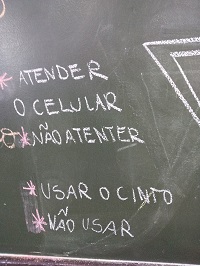 * ATENDER
O CELULAR
* NÃO ATENTER
* USAR O CINTO
* NÃO USAR